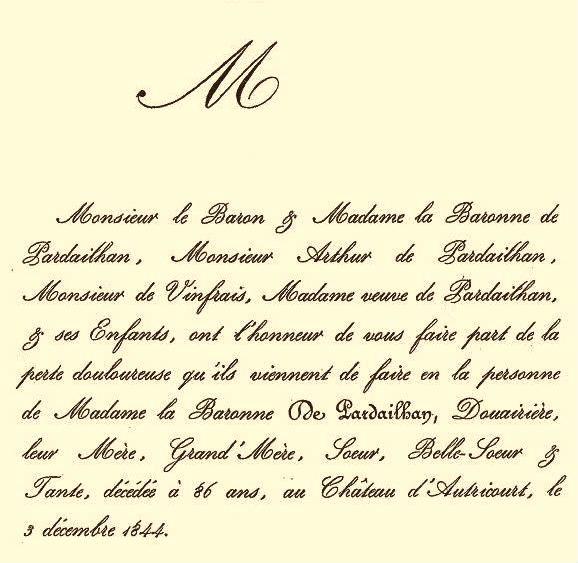 M
Monsieur le Baron & Madame la Baronne de
Pardailhan, Monsieur Arthur de Pardailhan,
Monsieur de Vinfrais, Madame veuve de Pardailhan,
& ses Enfants, ont l'honneur de vous faire part de la
perte douloureuse qu'ils viennent de faire en la personne
de Madame la Baronne De Pardailhan, Douairière,
leur Mère, Grand'Mère, Soeur, Belle-Soeur &
Tante, décédée à 86 ans, au Château d'Autricourt, le
3 décembre 1844.